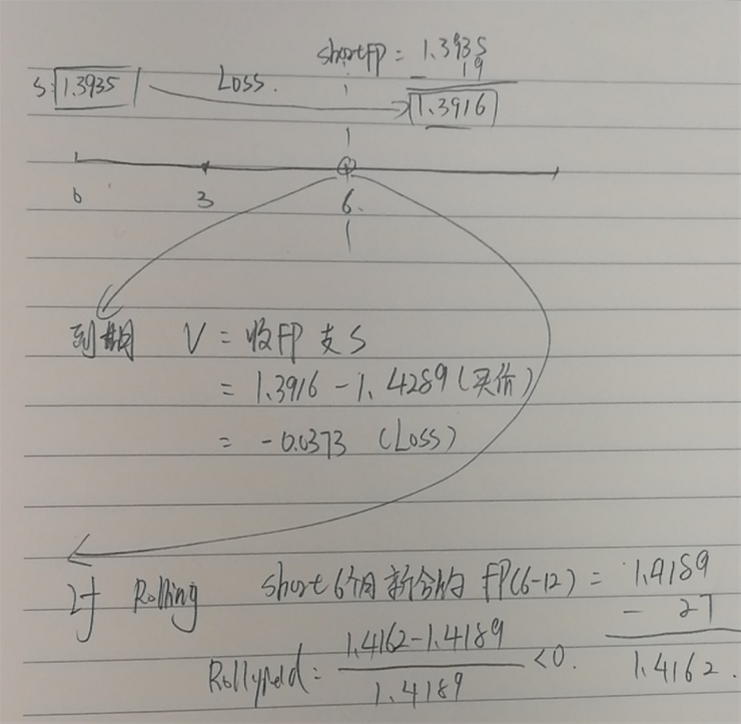 short FP = 1.3935
- 19
S: 1.3935 Loss. 1.3916
0 3 6.
到期 V = 收FP 支S
= 1.3916 - 1.4289 (买价)
= -0.0373 (Loss)
对 Rolling short 6个月新合约 FP(6-12) = 1.4189
- 27
Rollyield = 1.4162-1.4189 / 1.4189 <0. 1.4162.